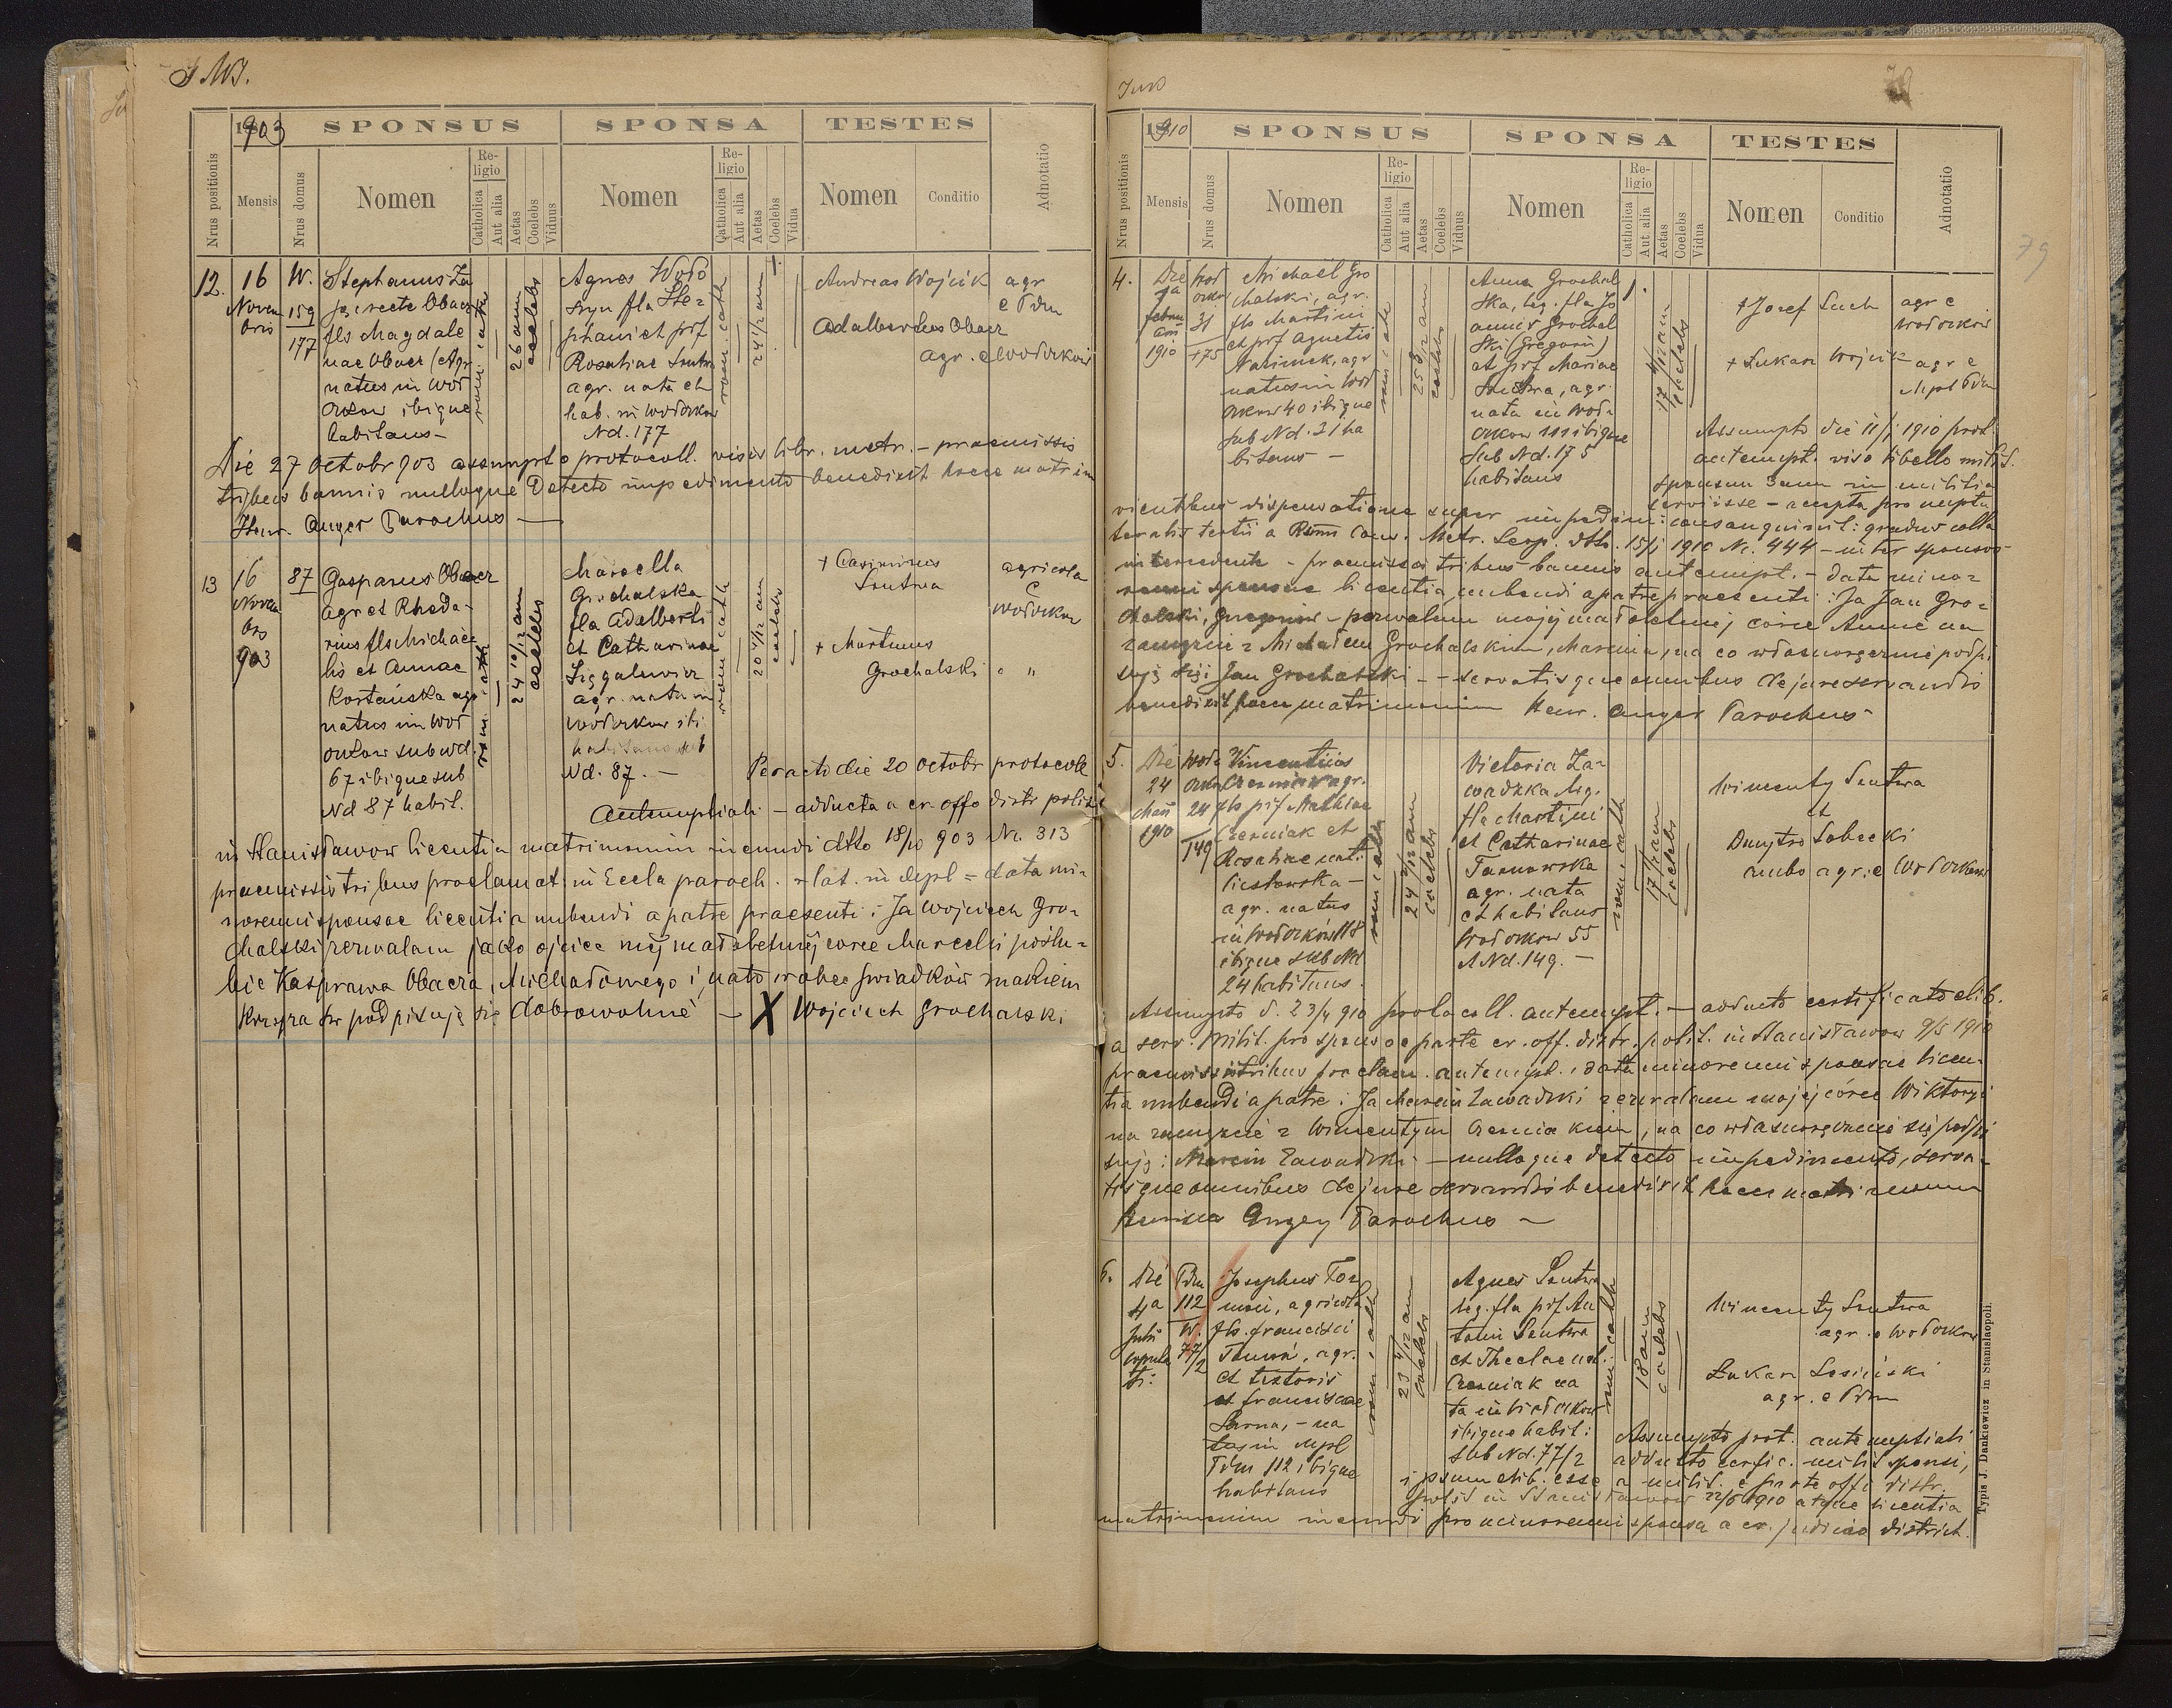 903
SPONSUS SPONSA TESTES
Nrus positionis Mensis Nrus domus Nomen Religio Catholica Aut alia Aetas Coelebs Viduus Nomen Religio Catholica Aut alia Aetas Coelebs Vidua Nomen Conditio Adnotatio
12.
16
Novem
bris
W.
159
177
Stephanus Za
recte Obacz
fls Magdale
nae Obacz (Agr
natus in Wod
orkow ibique
habitans –
rom. cath
26 ann
coelebs
Agnes Wodo
fla Ste-
phani et prf
Rosaliae Szutwa
agr. nata et
hab. in Wodorkow
Nd. 177
rom. cath
24 1/2 ann
Andreas Wojcik agr
e Pdm
Adalbertus Obacz
agr. e Wodorkow
Die 27 Octobr 903 assumpto protocoll. visis libr. metr. – praemissis
tribus bannis nulloque detecto impedimento benedixit hocce matrim
Henr. Anger Parochus —
13
16
Novem
bris
903
87
Gasparus Obacz
agr et Rheda-
rius fls Michae
lis et Annae
Kortańska agr
natus in Wod
orkow sub Nd.
67 ibique sub
Nd 87 habit.
rom. cath
24 10/12 ann
coelebs
Marcella
Grochalska
fla Adalberti
et Catharinae
agr. nata in
Wodorkow ibi
habitans sub
Nd. 87. –
rom. cath
20 4/12 ann
coelebs
+ Casimirus
Szutwa
agricola
e
Wodorkow
+ Martinus
Grochalski " "
Peracto die 20 Octobr protocoll
antenuptiali – adducta a cr. offo distr polit
in Stanisławow licentia matrimonium ineundi dtto 18/10 903 Nr. 313
praemissis tribus proclamat. in Eccla paroch. r. lat. in Mpl = data mi-
norenni sponsae licentia nubendi a patre praesenti: Ja Wojciech Gro-
chalski zezwalam jako ojciec mej małoletniej corce Marcelli poślu-
bić Kaspra Obacza Michałowego i na to wobec świadków znakiem
Krzyża św podpisuję się dobrowolnie – X Wojciech Grochalski
79
1910
SPONSUS SPONSA TESTES
Nrus positionis Mensis Nrus domus Nomen Religio Catholica Aut alia Aetas Coelebs Viduus Nomen Religio Catholica Aut alia Aetas Coelebs Vidua Nomen Conditio Adnotatio
4.
Die
7a
februarii
1910
Wod
orkow
31
+75
Michael Gro
chalski, agr.
fls Martini
et prf Agnetis
agr
natus in Wod
orkow 40 ibique
sub Nd. 31 ha
bitans –
rom. cath
coelebs
Anna Grochal
ska, leg. fla Jo
annis Grochal
ski (Gregorii)
et prf Mariae
Szutwa, agr.
nata in Wod-
orkow 111 ibique
sub Nd. 175
habitans
17 4/12 ann
coelebs
+ Jozef Such agr e
Wodorkow
+ Łukasz Wojcik agr e
Mpl Pdm
Assumpto die 11/1 1910 prot.
antenupt. viso libello milit.
sponsum 3 ann in militia
serviisse – accepta pro nuptu
rientibus dispensatione super impedim: consanguinit: gradus colla
teralis tertii a Rssmo Cons. Metr. Leop. dtto. 15/1 1910 Nr. 444 – inter sponsos
intercedente – praemissis tribus bannis antenupt. – data mino-
renni sponsae licentia nubendi a patre praesenti: Ja Jan Gro-
chalski, Gregorów – pozwalam mojej małoletniej córce Annie na
zamęźcie z Michałem Grochalskim, Marcina, na co własnoręcznie podpi
suję się: Jan Grochalski – – servatisque omnibus de jure servandis
benedixit hocce matrimonium Henr. Anger Parochus –
5.
Die
24
Maii
1910
Wod
orkow
24
149
Vincentius
Czerniak agr.
fls prf Mathiae
Czerniak et
Rosaliae nat.
agr. natus
in Wodorków 118
ibique sub Nd
24 habitans.
rom. cath
coelebs
Victoria Za-
wadzka leg.
fla Martini
et Catharinae
Tarnowska
agr. nata
et habitans
Wodorkow 55
Nd. 149. –
rom. cath
coelebs
Wincenty Szutwa
et
Dmytro Sobecki
ambo agr. e Wodorkow
Assumpto d. 23/4 910 protocoll. antenupt. – adducto certificato lib.
a serv. milit. pro sponso e parte cr. off. distr. polit. in Stanisławow 9/5 1910
praemissis tribus proclam. antenupt., data minorenni sponsae licen-
tia nubendi a patre: Ja Marcin Zawadzki zezwalam mojej córce Wiktoryi
na zamęźcie z Wincentym Czerniakiem, na co własnoręcznie się podpi
suję: Marcin Zawadzki – nulloque detecto impedimento, serva-
tisque omnibus de jure servandis benedixit hocce matrimonium
Henricus Anger Parochus –
6.
Die
4a
Julii
copula
ti:
Pdm
112
W.
77/2
Josephus To-
agricola
fls. Francisci
agr.
et textoris
et Franciscae
Sarna, – na
tus in Mpl
Pdm 112 ibique
habitans
rom. cath
23 4/12 ann
coelebs
Agnes Szutwa
leg. fla prf An
tonii Szutwa
et Theclae nat.
Czerniak na
ta in Wodorkow
ibique habit:
sub Nd. 77/2
rom. cath
18 ann
coelebs
Wincenty Szutwa
agr. e Wodorkow
Łukasz Lesiński
agr. e Pdm
Assumpto prot. antenuptiali
adducto certific. milit sponsi,
ipsum lib. esse a milit. e parte offi distr.
polit in Stanisławow 22/6 1910 atque licentia
matrimonium ineundi pro minorenni sponsa a cr. judicio district.
Typis J. Dankiewicz in Stanislaopoli.